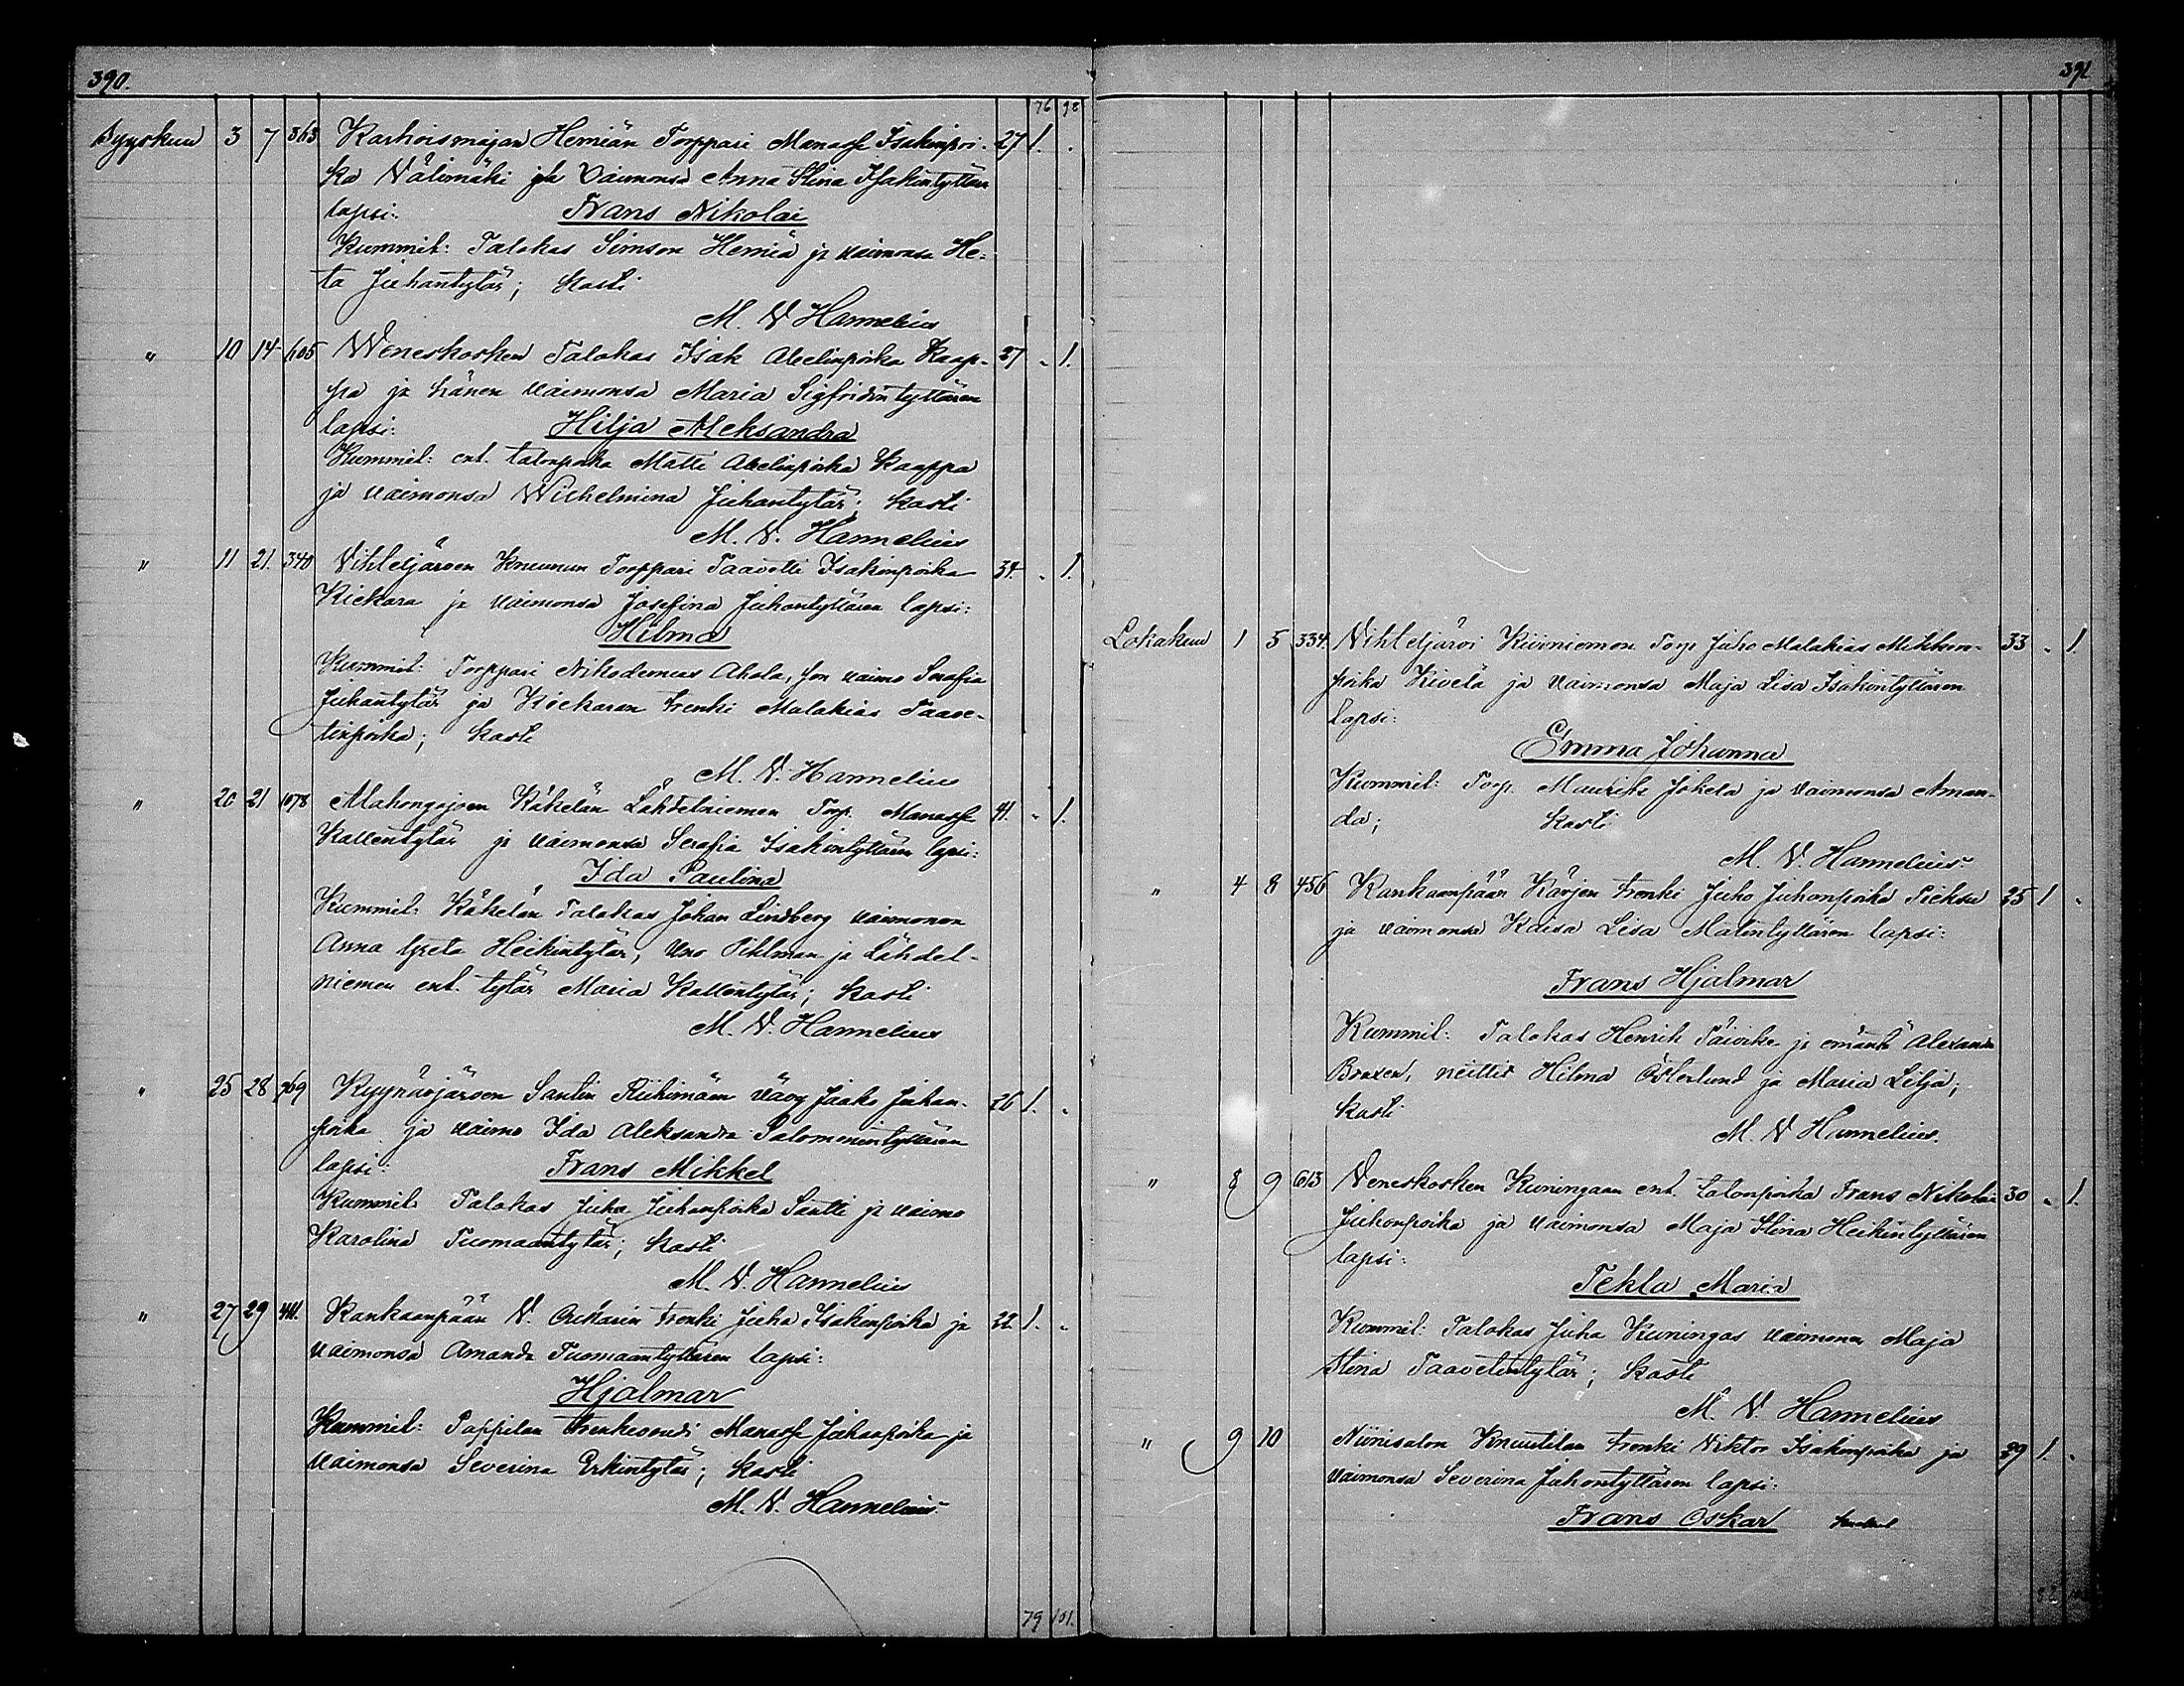 390.
76 98
Syyskuu 3 7 363 Karhoismajan Hemiän Torppari Manasse Isakinpoi- 27 1. .
ka Välimäki ja Vaimonsa Anna Stina Isakintyttären
lapsi: Frans Nikolai
Kummit: Talokas Simson Hemiä ja vaimonsa He-
ta Juhantytär; kasti
M. V. Hannelius
" 10 14 605 Weneskosken Talokas Isak Abelinpoika Kaap- 27 " 1.
pa ja hänen vaimonsa Maria Sigfridintyttären
lapsi: Hilja Aleksandra
Kummit: ent. talonpoika Matti Abelinpoika Kaappa
ja vaimonsa Wilhelmina Juhantytär; kasti
M. V. Hannelius
" 11 21. 340 Vihteljärven Torppari Taavetti Isakinpoika 34. " 1.
Kiekara ja vaimonsa Josefina Juhontyttären lapsi:
Hilma
Kummit: Torppari Nikodemus Ahola, sen vaimo Serafia
Juhantytär ja Kiekaran trenki Malakias Taave-
tinpoika; kasti
M. V. Hannelius
" 20 21 1078 Alahongojoen Käkelän Lähtelniemen Torp. Manasse 41. " 1.
Kallentytär ja vaimonsa Serafia Isakintyttären lapsi:
Ida Paulina
Kummit: Käkelän Talokas Johan Lindberg vaimonon
Anna Greta Heikintytär, Uno Pihlman ja Lähdel-
niemen ent. tytär Maria Kallentytär; kasti
M. V. Hannelius
" 25 28 769 Kyynärjärven Santin Riihimäen Jaako Juhan- 26 1. "
poika ja vaimo Ida Aleksandra Salomonintyttären
lapsi: Frans Mikkel
Kummit: Talokas Juha Juhanpoika Santti ja vaimo
Karolina Tuomaantytär; kasti
M. V. Hannelius
" 27 29 441. Kankaanpään V. trenki Juha Isakinpoika ja 22 1. "
vaimonsa Amanda Tuomaantyttären lapsi:
Hjalmar
Kummit: Pappilan Manasse Juhanpoika ja
vaimonsa Severina Erkintytär; kasti
M. V. Hannelius
79 101.
391
Lokakuu 1 5 334. Vihteljärvi Kiviniemen Torp. Juho Malakias Mikkon- 33 " 1
poika Kivelä ja vaimonsa Maja Lisa Isakintyttären
lapsi:
Emma Johanna
Kummit: Torp. Maurits Jokela ja vaimonsa Aman-
da; kasti
M. V. Hannelius
" 4 8 456 Kankaanpään Kärjen trenki Juho Juhonpoika 25 1 "
ja vaimonsa Kaisa Lisa Matintyttären lapsi:
Frans Hjalmar
Kummit: Talokas Henrik Päivike ja emäntä Alexandra
Boxen, neittit Hilma Österlund ja Maria Lilja;
kasti
M. V. Hannelius.
" 8 9 613 Veneskosken Kuningaan ent. talonpoika Frans Nikolai 30 " 1.
Juhonpoika ja vaimonsa Maja Stina Heikintyttären
lapsi:
Tekla Maria
Kummit: Talokas Juha Kuningas vaimonon Maja
Stina Taavetintytär; kasti
M. V. Hannelius
" 9 10 Niinisalon Knuutilan trenki Viktor Isakinpoika ja 29 1. "
vaimonsa Severina Juhontyttären lapsi:
Frans Oskar
82